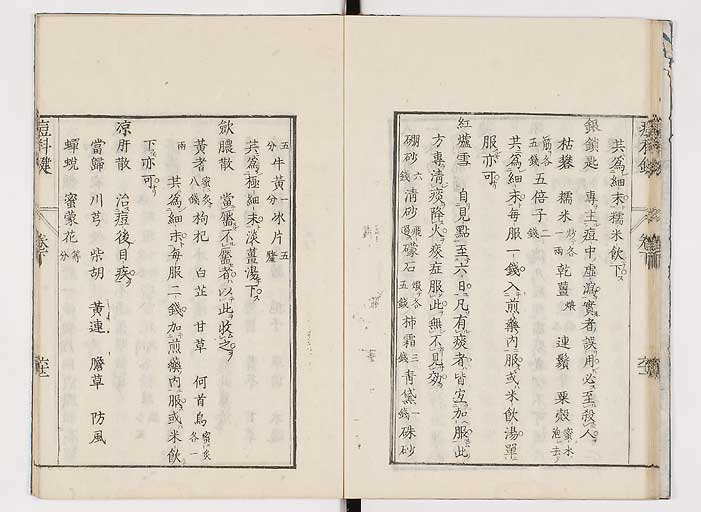 共爲細末糯米飲下
銀鎖匙 專主痘中虛瀉實者誤用必至殺人
枯礬 糯米一兩炒各 乾薑煨 連鬚 粟殼蜜水泡去
筋各五錢 五倍子二錢
共爲細末每服一錢入煎藥內服或米飲湯單
服亦可
紅爐雪 自見點至六日凡有痰者皆宜加服此
方專清痰降火痰症服此無不見効
硼砂六錢 清砂飛過 礞石煅各五錢 柿霜三錢 青黛一錢 硃砂
五分 牛黃一分 冰片五釐
共爲極細末淡薑湯下
斂膿散 當靨不靨者以此收之
黃耆蜜炙八錢 枸杞 白芷 甘草 何首烏蜜炙各一
兩
共爲細末每服二錢加煎藥內服或米飲
下亦可
涼肝散 治痘後目疾
當歸 川芎 柴胡 黃連 膽草 防風
蟬蛻 蜜蒙花等分
痘科鍵 卷下